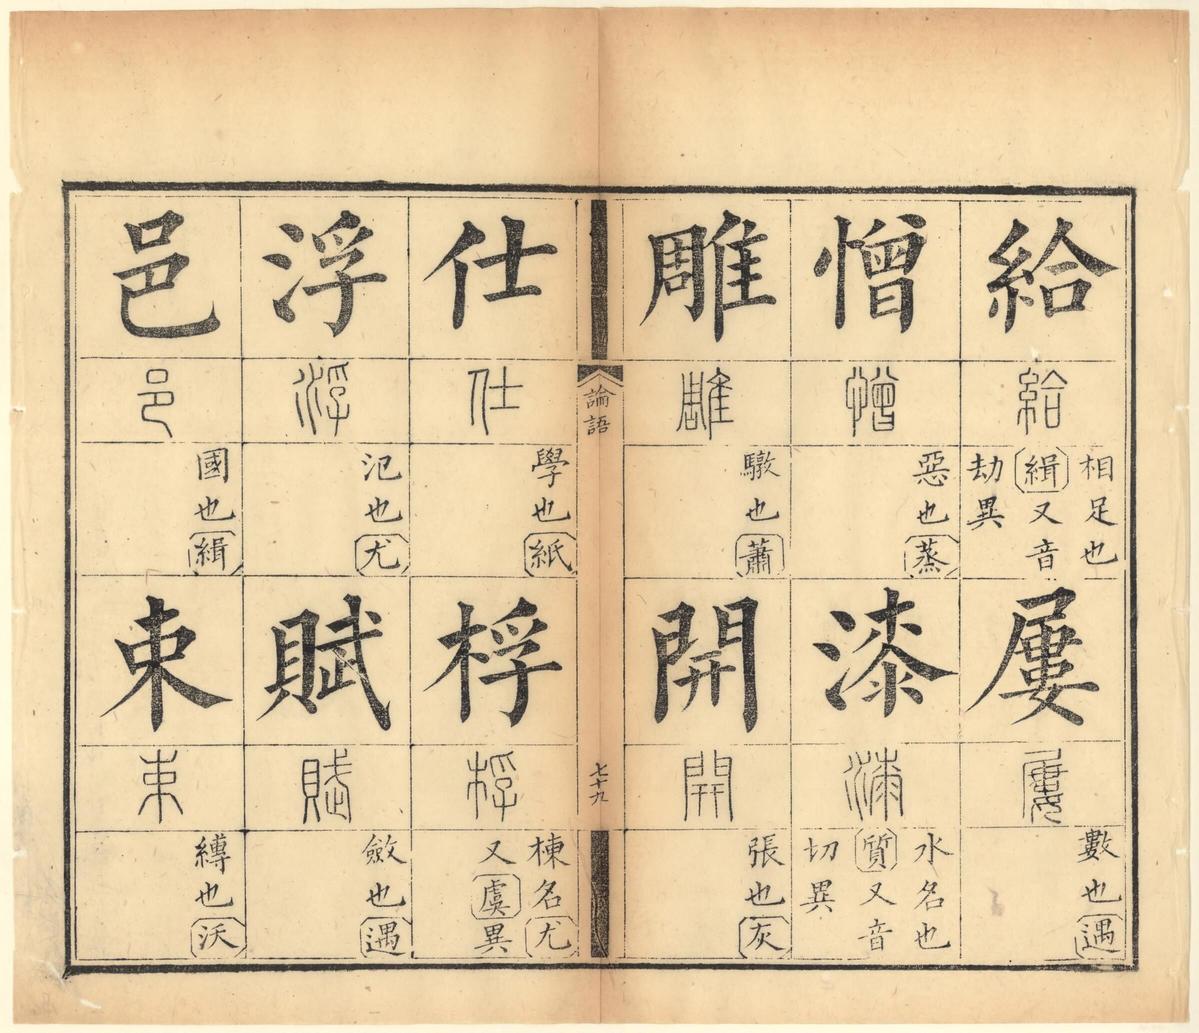 給
給
相足也
緝又音
劫異
屢
屢
數也遇
憎
憎
惡也蒸
漆
漆
水名也
質又音
切異
雕
雕
驐也蕭
開
開
張也灰
論語
七十九
仕
仕
學也紙
桴
桴
棟名尤
又虞異
浮
浮
氾也尤
賦
賦
斂也遇
邑
邑
國也緝
束
束
縛也沃